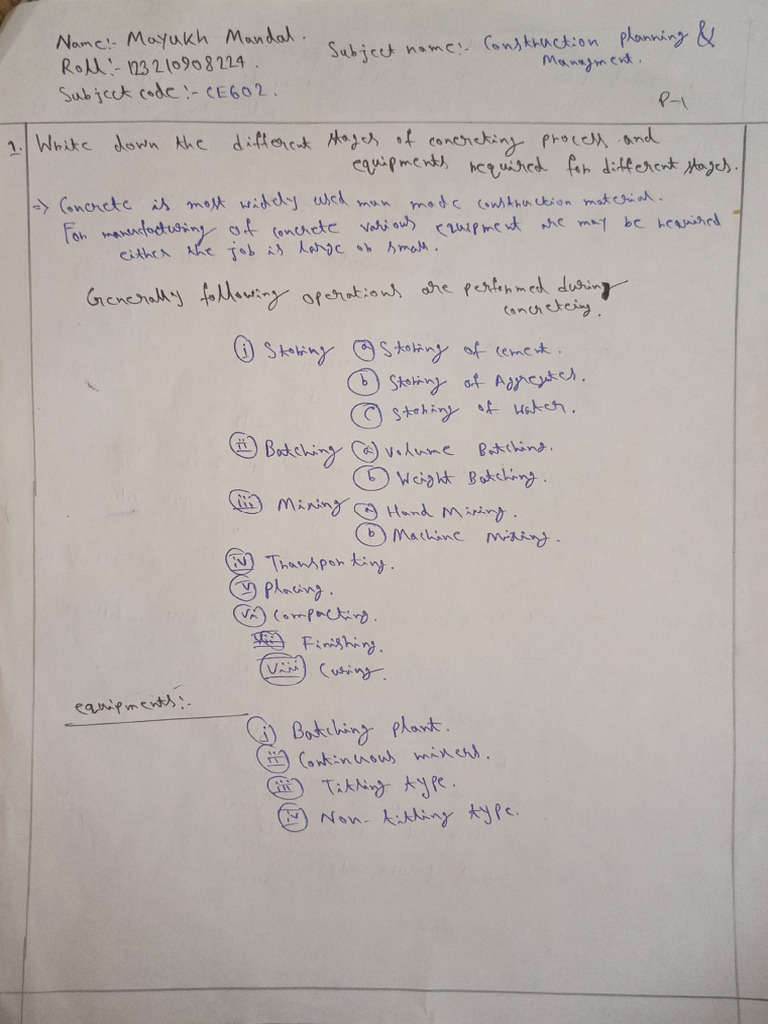 Name:- Mayukh Mandal.
Roll:- 123210908224.
Subject code:- CE602.
Subject name:- Construction planning &
Managment.
P-1
1. Write down the different stages of concreting process and
equipments required for different stages.
=> Concrete is most widely used man made construction material.
For manufacturing of concrete various equipment are may be required
either the job is large or small.
Generally following operations are performed during
concreteing.
(i) Storing (a) Storing of cement.
(b) Storing of Aggregates.
(c) Storing of Water.
(ii) Batching (a) Volume Batching.
(b) Weight Batching.
(iii) Mixing (a) Hand Mixing.
(b) Machine Mixing.
(iv) Transporting.
(v) Placing.
(vi) Compacting.
(vii) Finishing.
(viii) Curing.
equipments:-
(i) Batching plant.
(ii) Continuous mixers.
(iii) Titling type.
(iv) Non-titling type.